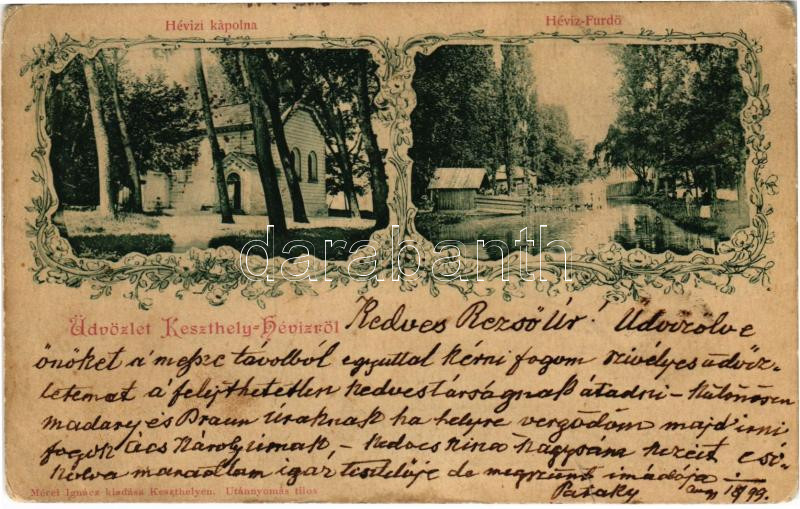 Hévizi kàpolna
Héviz-Furdö
darabanth
Üdvözlet Keszthely-Hévizröl Kedves Rezső Úr! Üdvözölve
önöket a messze távolból egyuttal kérni fogom szivélyes üdvöz-
letemet a felejthetetlen kedves társágnak átadni - Külnösen
madary és Braun Uraknak ha helyre vergődöm majd irni
fogok Ács Károly urnak, - Kedves Nina Nagysám kezeit csó-
kolva maradtam igaz tisztelője de megszünt imádója
Pataky aug 18/99.
Mérei Ignácz kiadása Keszthelyen. Utánnyomás tilos